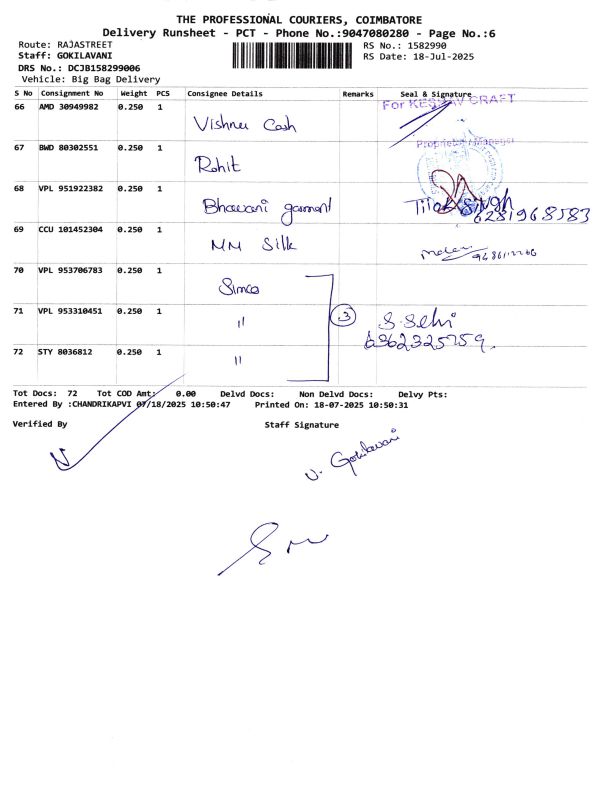 THE PROFESSIONAL COURIERS, COIMBATORE
Delivery Runsheet - PCT - Phone No.:9047080280 - Page No.:6
Route: RAJASTREET
Staff: GOKILAVANI
DRS No.: DCJB158299006
Vehicle: Big Bag Delivery
RS No.: 1582990
RS Date: 18-Jul-2025
S No Consignment No Weight PCS Consignee Details Remarks Seal & Signature
66 AMD 30949982 0.250 1 Vishnu Cash
For KESHAV CRAFT
Proprietor / Manager
67 BWD 80302551 0.250 1 Rohit
68 VPL 951922382 0.250 1 Bhawani garment Tilok Singh
6281968583
69 CCU 101452304 0.250 1 MM Silk
70 VPL 953706783 0.250 1 Simco
71 VPL 953310451 0.250 1 " 3 S. Selvi
6362325759.
72 STY 8036812 0.250 1 "
Tot Docs: 72 Tot COD Amt: 0.00 Delvd Docs: Non Delvd Docs: Delvy Pts:
Entered By :CHANDRIKAPVI 07/18/2025 10:50:47 Printed On: 18-07-2025 10:50:31
Verified By Staff Signature
N. Gokilavani